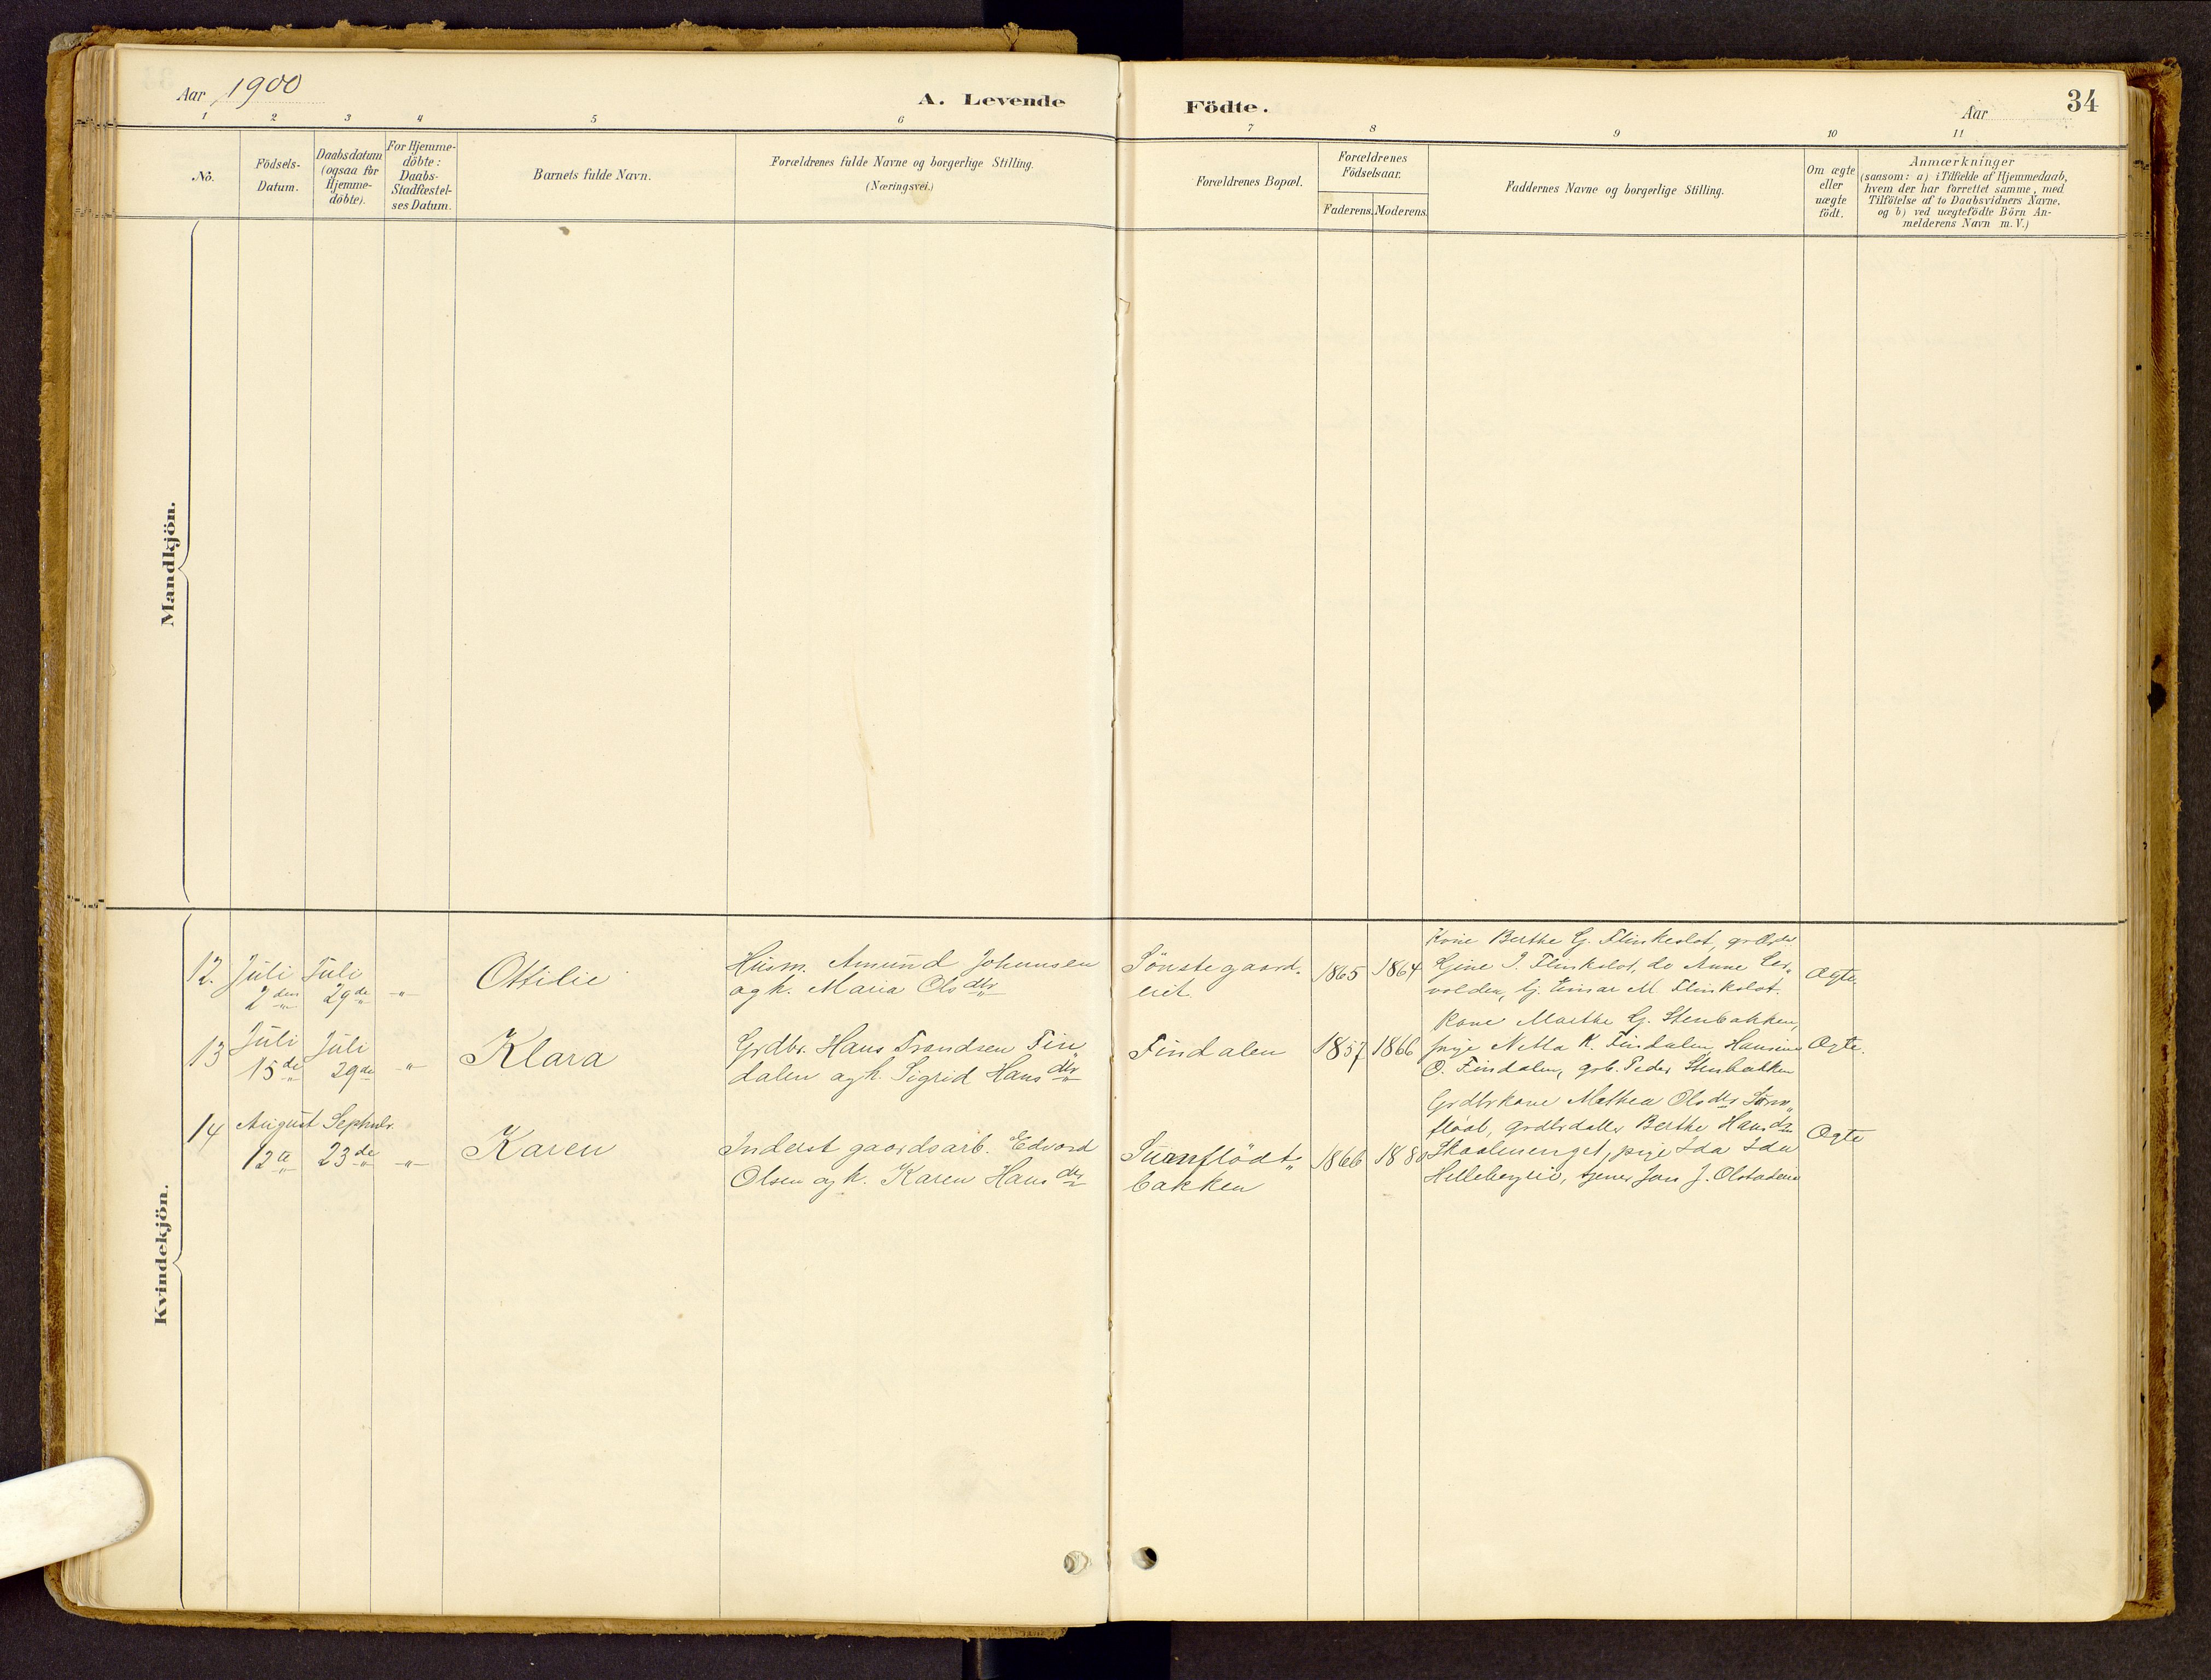 Aar 1900
A. Levende Födte.
Aar
34
1 2 3 4 5 6 7 8 9 10 11
No.
Födsels-
Datum.
Daabsdatum
(ogsaa for
Hjemme-
döbte).
For Hjemme-
döbte:
Daabs-
Stadfæstel-
ses Datum.
Barnets fulde Navn.
Forældrenes fulde Navne og borgerlige Stilling.
(Næringsvei.)
Forældrenes Bopæl.
Forældrenes
Födselsaar.
Faderens. Moderens.
Faddernes Navne og borgerlige Stilling.
Om ægte
eller
uægte
födt.
Anmærkninger
(saasom: a) i Tilfælde af Hjemmedaab,
hvem der har forrettet samme, med
Tilföielse af to Daabsvidners Navne,
og b) ved uægtefödte Börn An-
melderens Navn m. V.)
Mandkjön.
Kvindekjön.
12. Juli
2den
Juli
29de
"
Ottilie
Husm. Amund Johannsen
og k. Maria Olsdtr
Sönstegaard-
eiet
1865 1864
Kone Berthe G. Flinkeslot,
Gjine J. Flinkslot, do Anne
volden, Einar M. Flinkslot.
Ægte.
13 Juli
15de
Juli
29de
"
Klara
Grdbr. Hans Trondsen Fin
dalen og k. Sigrid Hansdtr
Findalen
1857 1866
Kone Marthe G. Stenbakken,
pige Netta K. Findalen, Hansine
O. Findalen, grb. Peder Stenbakken
Ægte.
14 August
12te
Septmbr.
23de
"
Karen
Inderst gaardsarb. Edvard
Olsen og k. Karen Hansdtr
Surnflödt"
bakken
1866 1880
Grdbrkone Mathea Olsdtr Surn"
flödt, grdbrdatter Berthe Hansdtr
Skaalerenget, pige Ida Ida
Hellebergeie, tjener Jon J. Olstadeie
Ægte